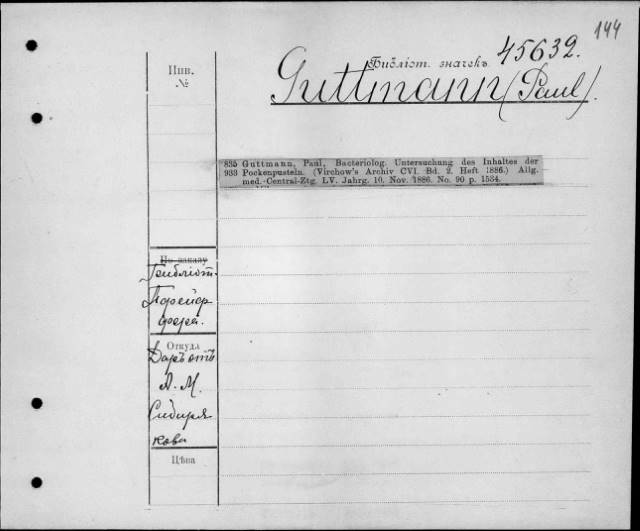 144
Библіот. значекъ 45632.
Guttmann (Paul).
Инв.
№
835 Guttmann, Paul, Bacteriolog. Untersuchung des Inhaltes der
933 Pockenpusteln. (Virchow's Archiv CVI. Bd. 2. Heft 1886.) Allg.
med.-Central-Ztg. LV. Jahrg. 10. Nov. 1886. No. 90 p. 1534.
По заказу
Библіот.
Пфейф
фера.
Откуда
Даръ отъ
А. М.
Сибиря
кова
Цѣна